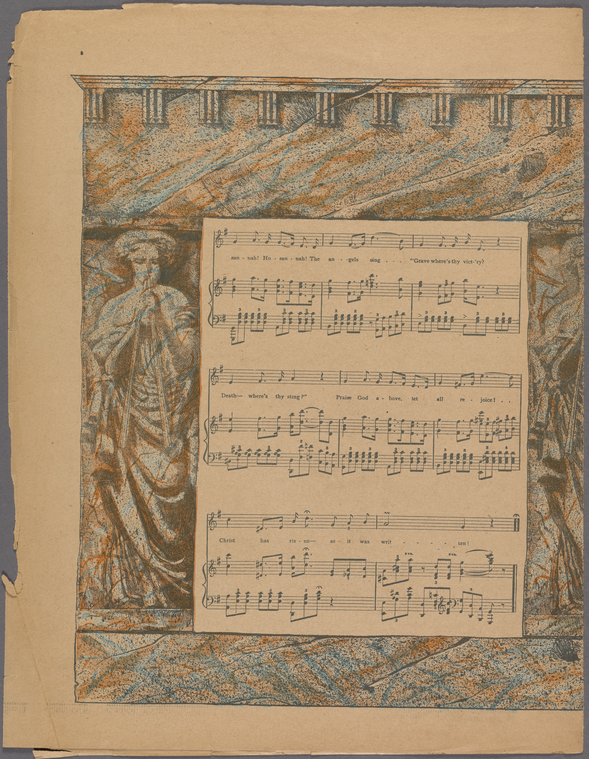 san - nah! Ho - san - nah! The an - gels sing . . . "Grave where's thy vict-'ry?
Death— where's thy sting?" Praise God a - bove, let all re - joice! . .
Christ has ris - en— as it was writ - . . . . ten!